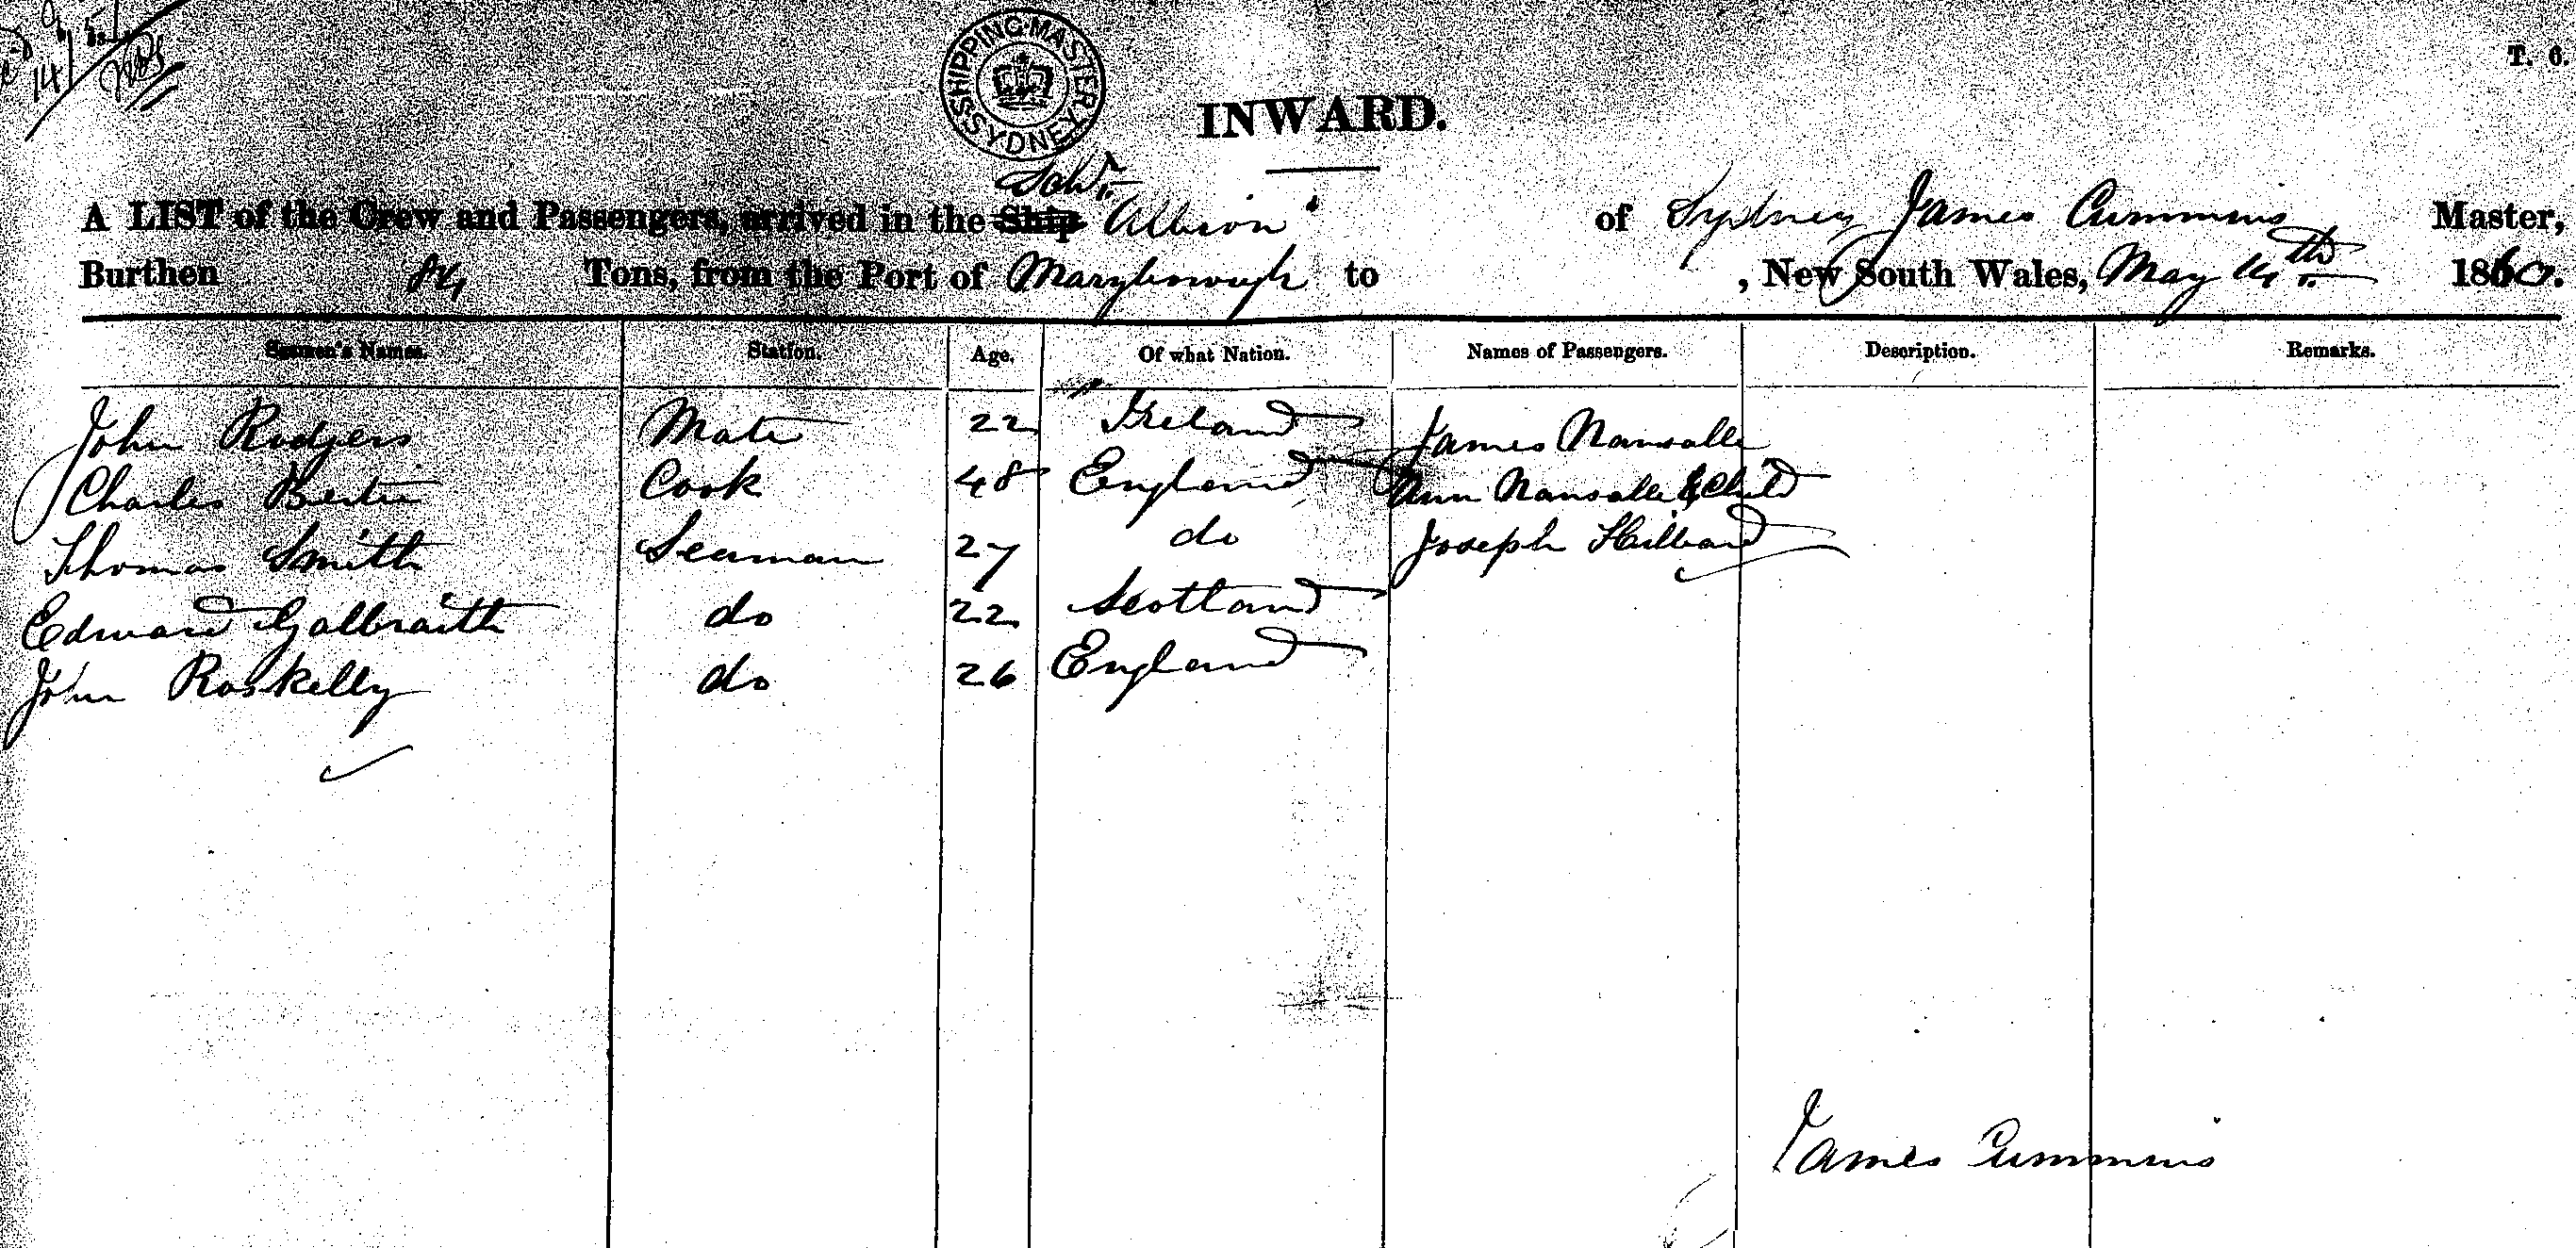 14/5
SHIPPING MASTER'S SYDNEY
T. 6.
INWARD.
Schr
A LIST of the Crew and Passengers, arrived in the Ship "Albion" of Sydney James Cummins Master,
Burthen 84 Tons, from the Port of Maryborough to , New South Wales, May 14th 1860.
Seamen's Names. Station. Age. Of what Nation. Names of Passengers. Description. Remarks.
John Rodgers Mate 22 Ireland James
Charles Cook 48 England Ann & Child
Thomas Smith Seaman 27 do Joseph Hilliard
Edward Galbraith do 22 Scotland
John Roskelly do 26 England
James Cummins